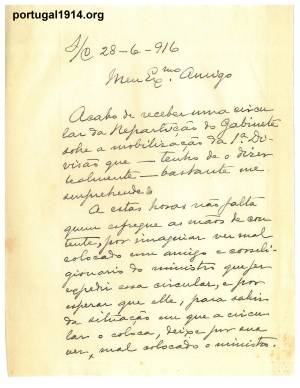 portugal1914.org
S/C 28-6-916
Meu Ex.mo Amigo
Acabo de receber uma circu
lar da Repartição do Gabinete
sobre a mobilização da 1ª Di
visão que — tenho de o dizer
lealmente — bastante me
surprehendeu
A estas horas não falta
quem esfregue as mãos de con
tente, por imaginar ver mal
colocado um amigo e correli
gionario do ministro que fez
expedir essa circular, e por
esperar que elle, para sahir
da situação em que a circu
lar o coloca, deixe por sua
vez, mal colocado o ministro.